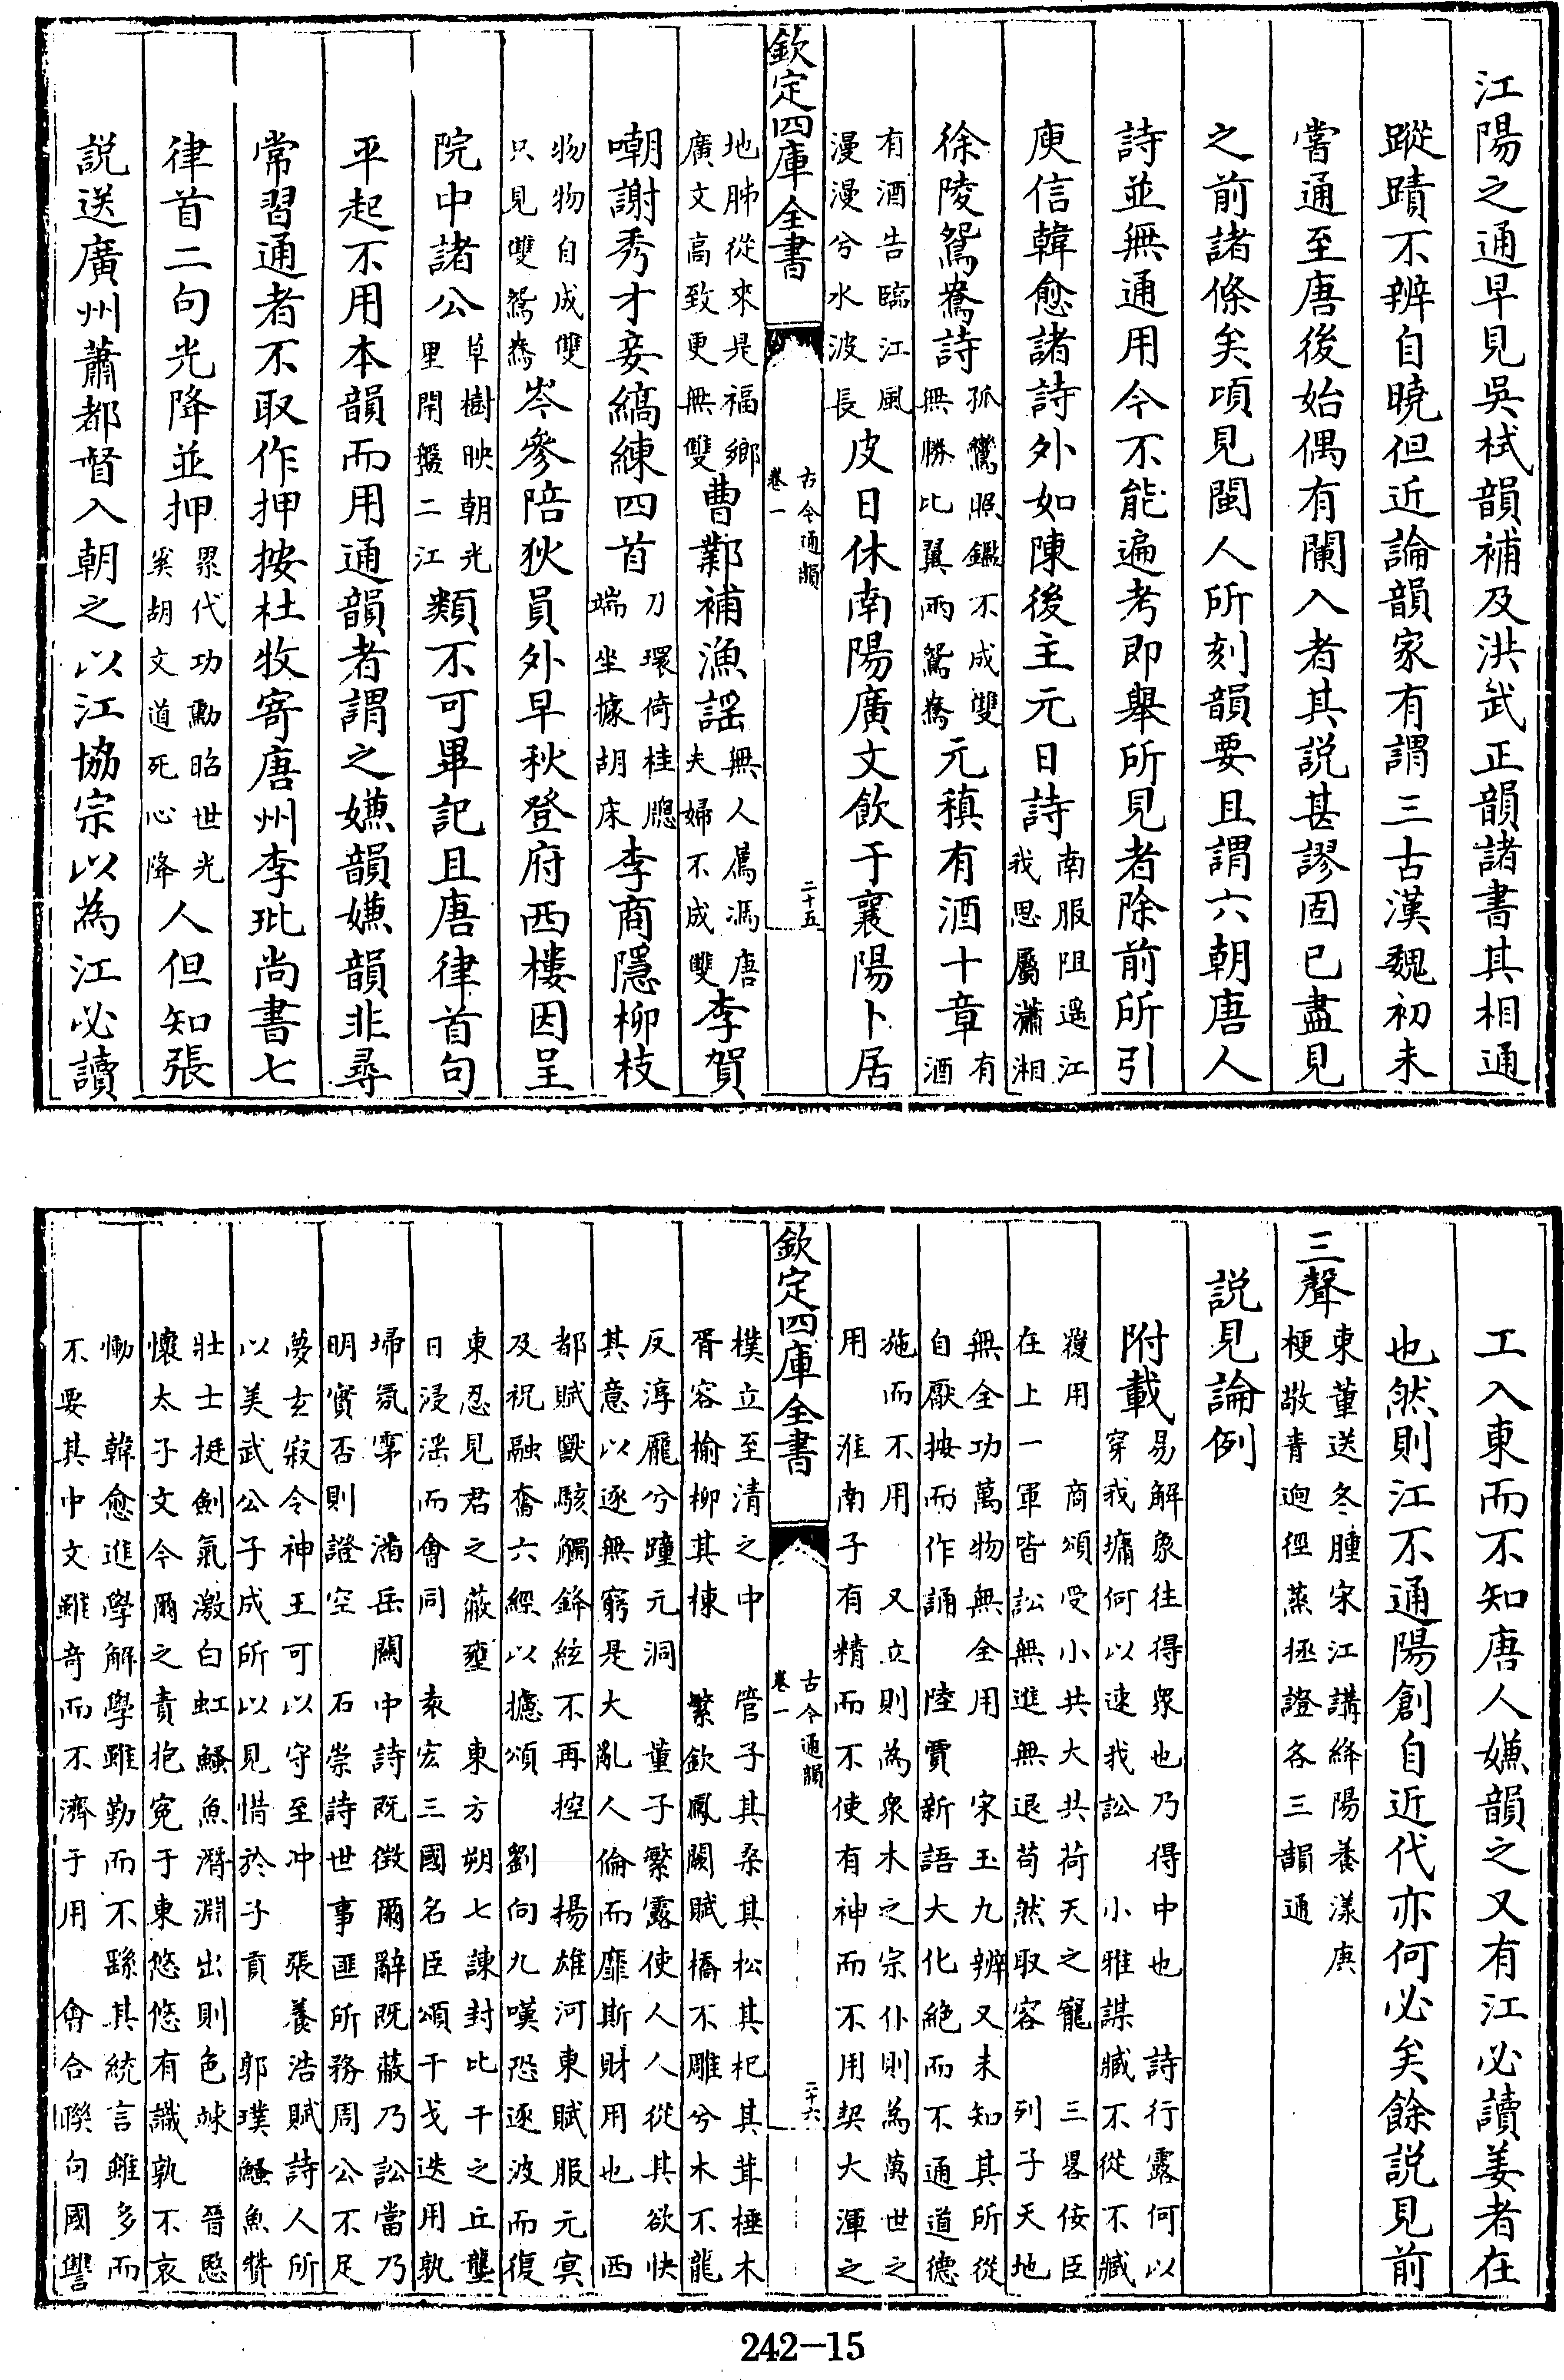 江陽之通早見吳棫韻補及洪武正韻諸書其相通
蹤蹟不辨自曉但近論韻家有謂三古漢魏初未
嘗通至唐後始偶有闌入者其説甚謬固已盡見
之前諸條矣頃見閩人所刻韻要且謂六朝唐人
詩並無通用今不能遍考即舉所見者除前所引
庾信韓愈諸詩外如陳後主元日詩南服阻遥江我思屬瀟湘
徐陵鴛鴦詩孤鸞照鑑不成雙無勝比翼兩鴛鴦元稹有酒十章有酒
有酒告臨江風漫漫兮水波長皮日休南陽廣文飲于襄陽卜居
欽定四庫全書
古今通韻
卷一
二十五
地肺從來是福鄉廣文高致更無雙曹鄴補漁謡無人為馮唐夫婦不成雙李賀
嘲謝秀才妾縞練四首刀環倚桂牕端坐據胡床李商隱柳枝
物物自成雙只見雙鴛鴦岑參陪狄員外早秋登府西樓因呈
院中諸公草樹映朝光里閈盤二江類不可畢記且唐律首句
平起不用本韻而用通韻者謂之嫌韻嫌韻非尋
常習通者不取作押按杜牧寄唐州李玭尚書七
律首二句光降並押累代功勳昭世光奚胡文道死心降人但知張
説送廣州蕭都督入朝之以江協宗以為江必讀
工入東而不知唐人嫌韻之又有江必讀姜者在
也然則江不通陽創自近代亦何必矣餘説見前
三聲東董送冬腫宋江講絳陽養漾庚梗敬青迥徑蒸拯證各三韻通
説見論例
附載易解象往得衆也乃得中也　詩行露何以穿我墉何以速我訟　小雅謀臧不從不臧
覆用　商頌受小共大共荷天之寵　三畧佞臣在上一軍皆訟無進無退苟然取容　列子天地
無全功萬物無全用　宋玉九辨又未知其所從自厭按而作誦　陸賈新語大化絶而不通道德
施而不用　又立則為衆木之宗仆則為萬世之用　淮南子有精而不使有神而不用契大渾之
欽定四庫全書
古今通韻
卷一
二十六
樸立至清之中　管子其桑其松其杞其茸棰木胥容榆柳其楝　繁欽鳳闕賦橋不雕兮木不龍
反淳龐兮踵元洞　董子繁露使人人從其欲快其意以逐無窮是大亂人倫而靡斯財用也　西
都賦獸駭觸鋒絃不再控　揚雄河東賦服元冥及祝融奮六經以攄頌　劉向九嘆恐逐波而復
東忍見君之蔽壅　東方朔七諫封比干之丘壟日浸淫而會同　袁宏三國名臣頌干戈迭用孰
埽氛霿　潘岳關中詩既徵爾辭既蔽乃訟當乃明實否則證空　石崇詩世事匪所務周公不足
夢玄寂令神王可以守至冲　張養浩賦詩人所以美武公子成所以見惜於子貢　郭璞鱃魚贊
壯士挺劍氣激白虹鱃魚潛淵出則色悚　晉愍懷太子文今爾之責抱寃于東悠悠有識孰不哀
慟　韓愈進學解學雖勤而不繇其統言雖多而不要其中文雖奇而不濟于用　會合聯句國讐
242-15